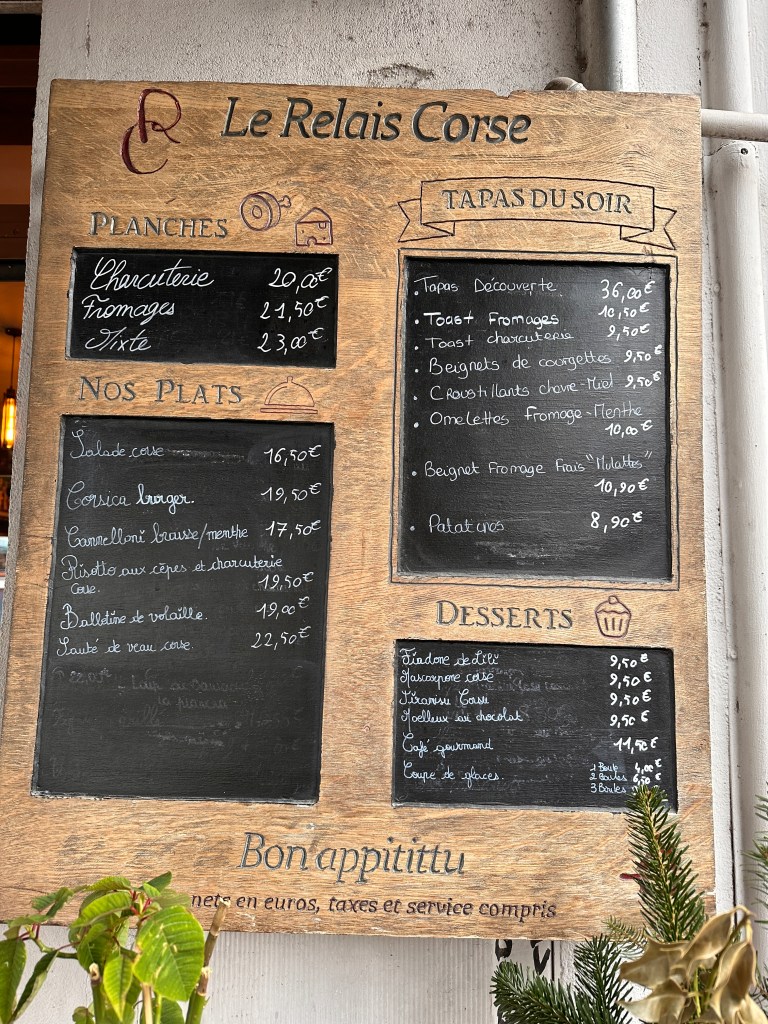 RC
Le Relais Corse
PLANCHES
Charcuterie 20,00€
Fromages 21,50€
Mixte 23,00€
NOS PLATS
Salade corse 16,50€
Corsica burger. 19,50€
Cannelloni brousse/menthe 17,50€
Risotto aux cèpes et charcuterie
corse. 19,50€
Ballotine de volaille. 19,00€
Sauté de veau corse. 22,50€
TAPAS DU SOIR
. Tapas Découverte 36,00€
. Toast Fromages 10,50€
. Toast charcuterie 9,50€
. Beignets de courgettes 9,50€
. Croustillants chèvre-Miel 9,50€
. Omelettes fromage-Menthe
10,00€
. Beignet Fromage Frais "Mulattes"
10,90€
. Patatines 8,90€
DESSERTS
Fiadone de Lili 9,50€
Mascarpone corse 9,50€
Tiramisu Corse 9,50€
Moelleux au chocolat 9,50€
Café gourmand 11,50€
Coupe de glaces. 1 Boule 4,00€
2 Boules 6,50€
3 Boules
Bon appitittu
nets en euros, taxes et service compris